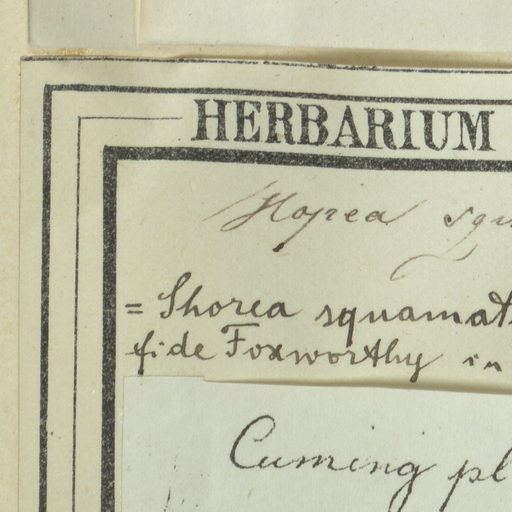 HERBARIUM
Hopea squ
= Shorea squamat
fide Foxworthy in
Cuming pl